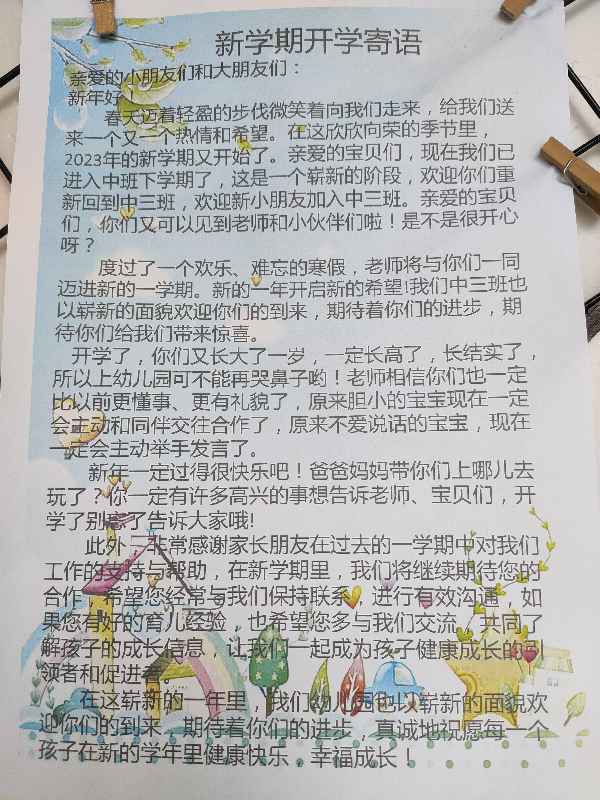 新学期开学寄语
亲爱的小朋友们和大朋友们：
新年好
春天迈着轻盈的步伐微笑着向我们走来，给我们送
来一个又一个热情和希望。在这欣欣向荣的季节里，
2023年的新学期又开始了。亲爱的宝贝们，现在我们已
进入中班下学期了，这是一个崭新的阶段，欢迎你们重
新回到中三班，欢迎新小朋友加入中三班。亲爱的宝贝
们，你们又可以见到老师和小伙伴们啦！是不是很开心
呀？
度过了一个欢乐、难忘的寒假，老师将与你们一同
迈进新的一学期。新的一年开启新的希望!我们中三班也
以崭新的面貌欢迎你们的到来，期待着你们的进步，期
待你们给我们带来惊喜。
开学了，你们又长大了一岁，一定长高了，长结实了，
所以上幼儿园可不能再哭鼻子哟！老师相信你们也一定
比以前更懂事、更有礼貌了，原来胆小的宝宝现在一定
会主动和同伴交往合作了，原来不爱说话的宝宝，现在
一定会主动举手发言了。
新年一定过得很快乐吧！爸爸妈妈带你们上哪儿去
玩了？你一定有许多高兴的事想告诉老师、宝贝们，开
学了别忘了告诉大家哦!
此外，非常感谢家长朋友在过去的一学期中对我们
工作的支持与帮助，在新学期里，我们将继续期待您的
合作，希望您经常与我们保持联系，进行有效沟通，如
果您有好的育儿经验，也希望您多与我们交流，共同了
解孩子的成长信息，让我们一起成为孩子健康成长的引
领者和促进者。
在这崭新的一年里，我们幼儿园也以崭新的面貌欢
迎你们的到来，期待着你们的进步，真诚地祝愿每一个
孩子在新的学年里健康快乐，幸福成长！